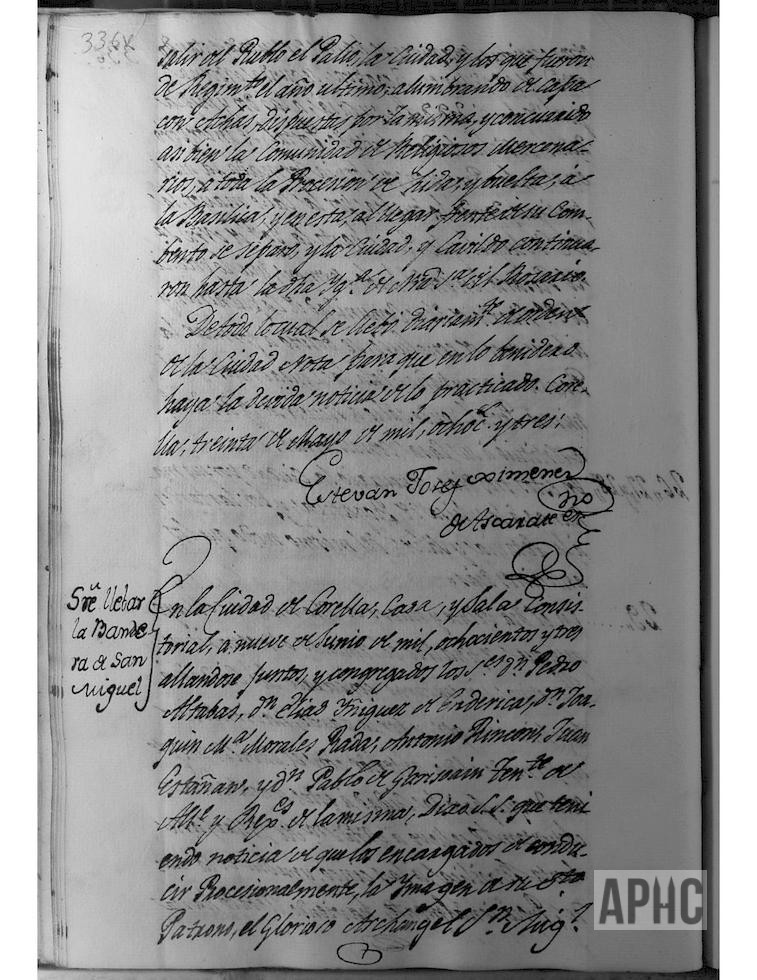 336v
salir del Pueblo el Palio, la Ciudad, y los que fueron
de Regimto. el año ultimo, alumbrando de capa
con Achas, dispuestas por la misma, y concurriendo
asi bien la Comunidad de Religiosos Mercena-
rios, a toda la Procesion de hida, y buelta, a
la Basilica, y en esta, al llegar frente de su Com-
bento se separó, y la Ciudad, y Cavildo continua-
ron hasta la dha Ygª. de Nrâ Srª. del Rosario.
De todo lo cual se de orden
de la Ciudad Nota para que en lo benidero
haya la devida noticia de lo practicado. Core-
lla, treinta de Mayo de mil, ochoc. y tres.
Estevan Josef Ximenez
no
de Ascarate
Sre. llebar
la Bande
ra de San
Miguel
En la Ciudad de Corella, Casa, y Sala Consis
torial, á nueve de Junio de mil, ochocientos y tres
allandose juntos, y congregados los Sres. Dn. Pedro
Altabas, Dn. Elias Yñiguez de Enderica, Dn. Joa-
quin Mª. Morales Rada, Antonio Rincon, Juan
Estañan, y Dn. Pablo de Goriwain Tente. de
Alle. y Rexes. de la misma, Dixo S.S. que teni
endo noticia de que los encargados de condu-
cir Procesionalmente, la Ymagen de su Sto.
Patrono, el Glorioso Archangel Sn. Migl.
APHC